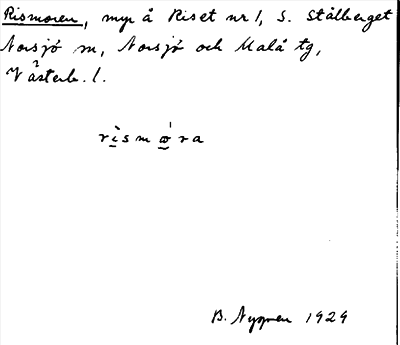 Rismoren, myr å Riset nr 1, S. Stålberget
Norsjö sn, Norsjö och Malå tg,
Västerb. l.
rìsmǿra
B. Nygren 1929